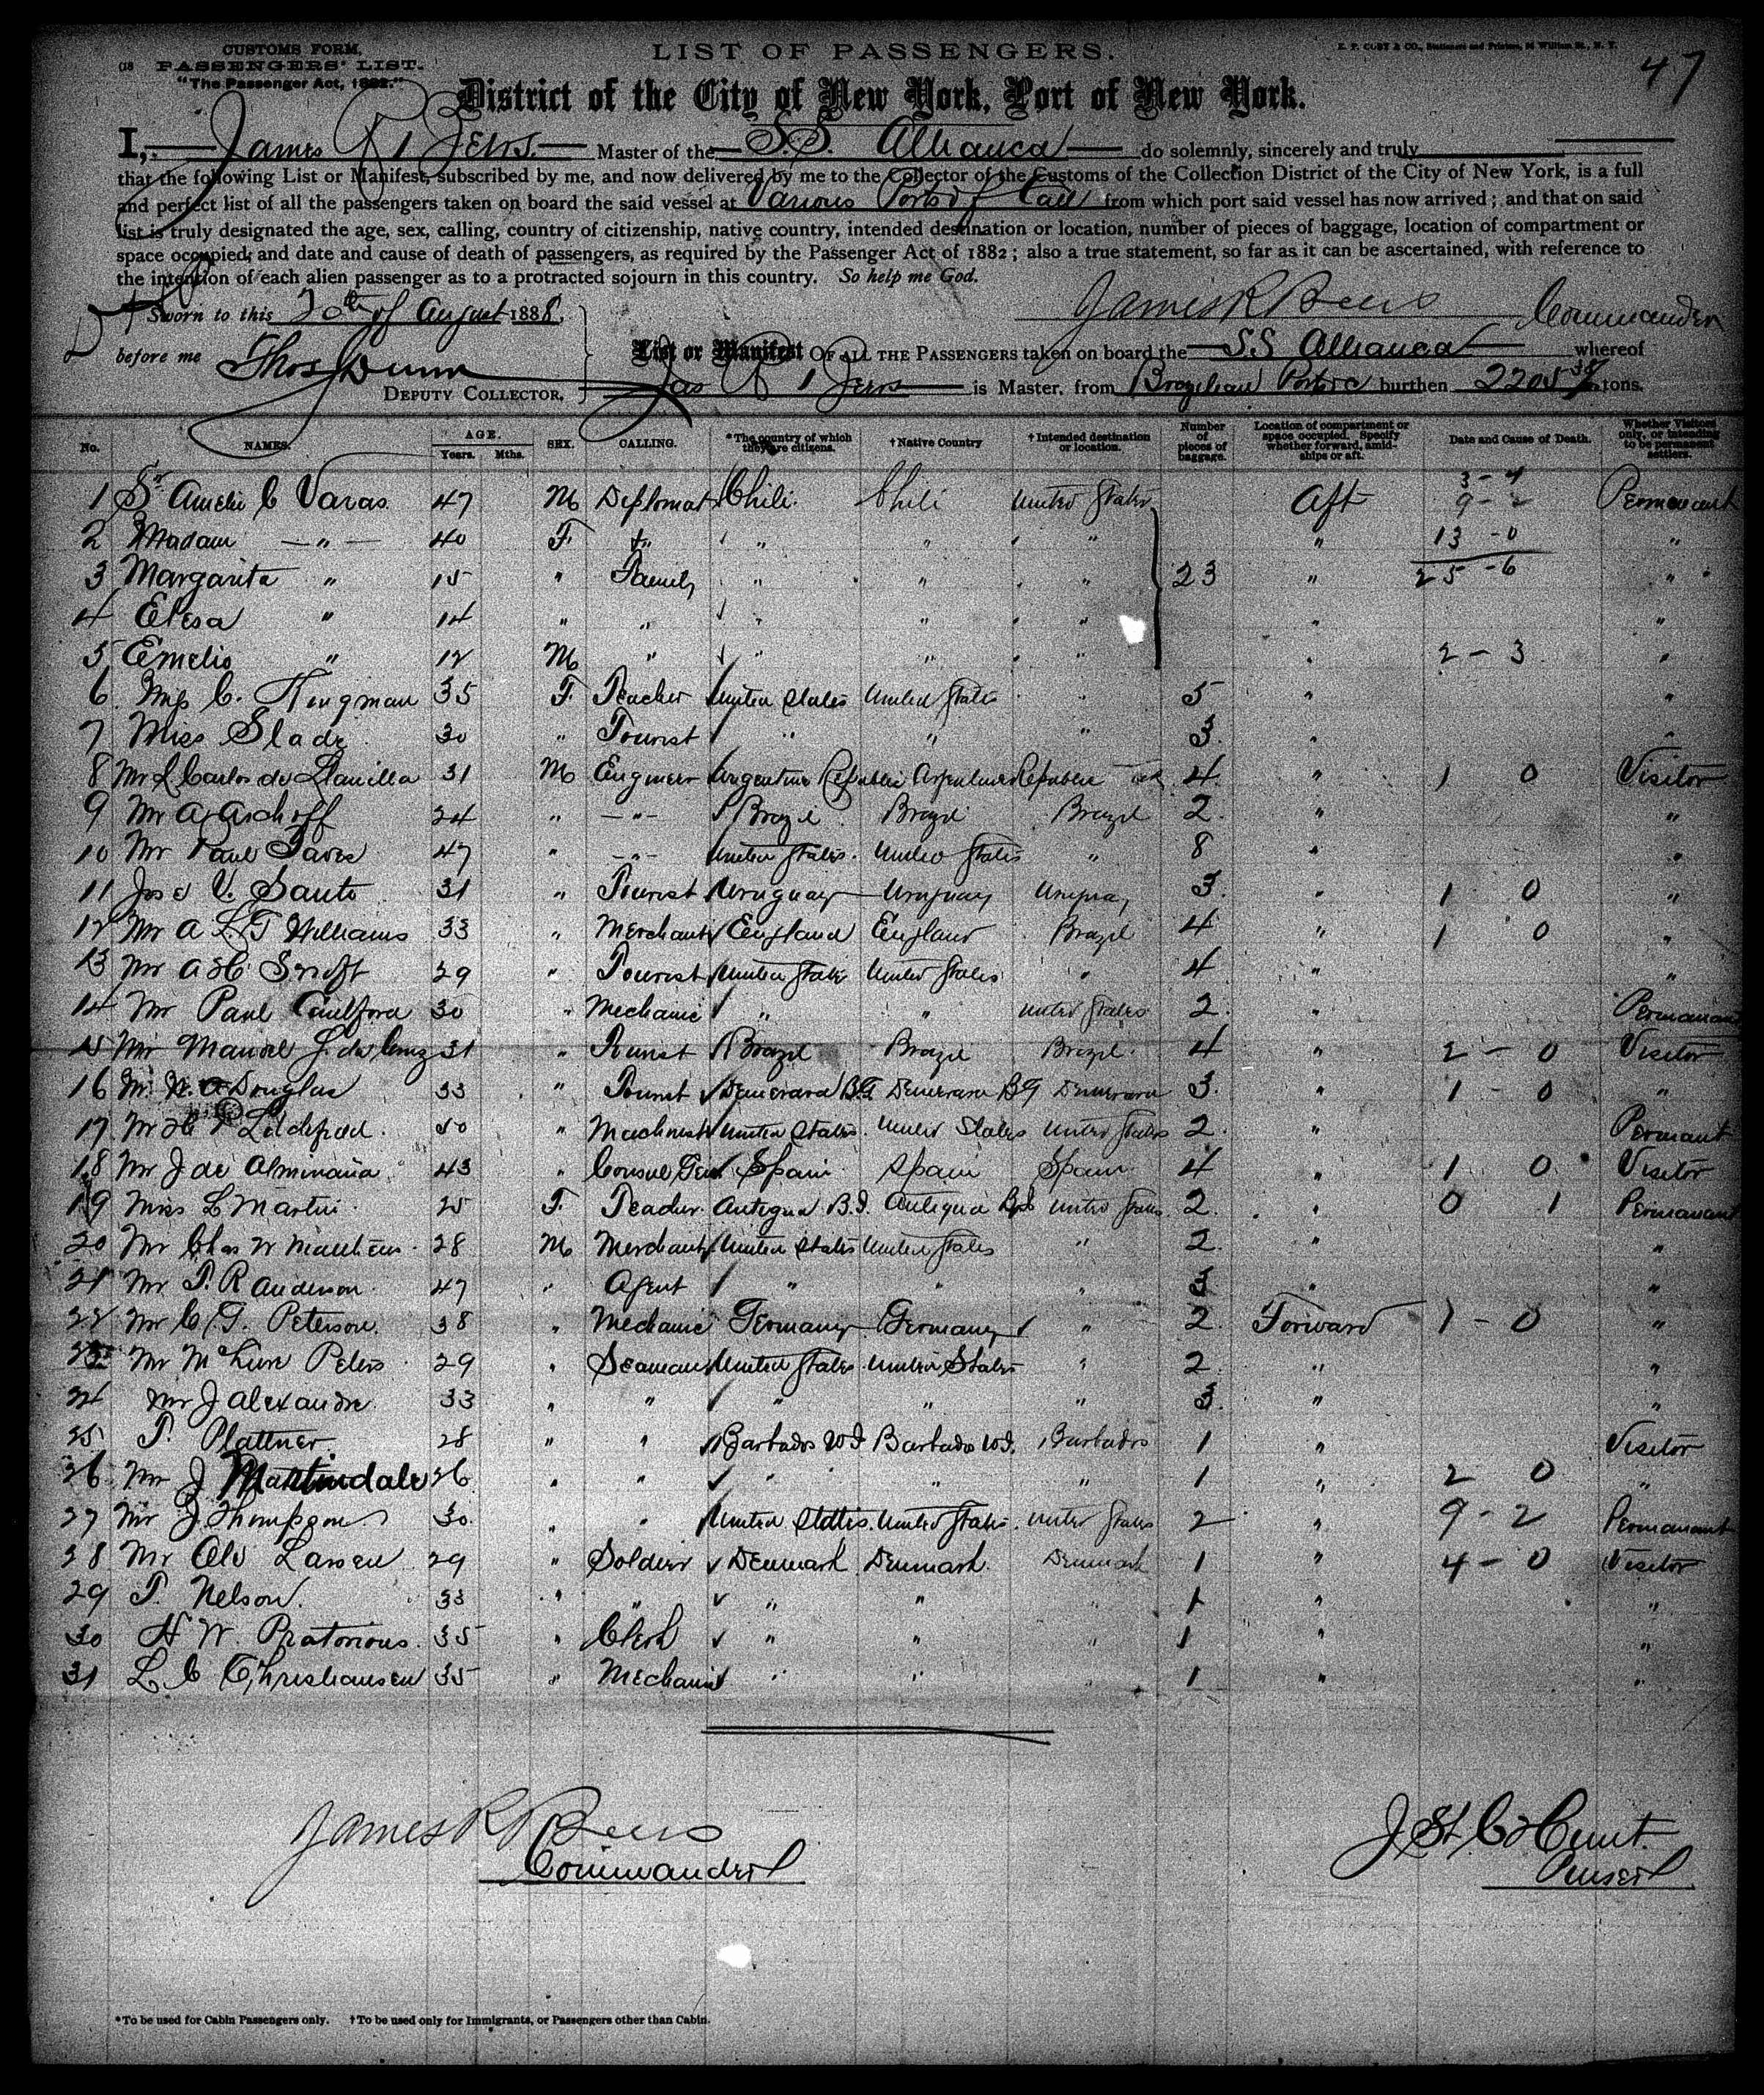 CUSTOMS FORM,
PASSENGERS' LIST.
"The Passenger Act, 1882."
LIST OF PASSENGERS.
E. P. COBY & CO., Stationers and Printers, William St., N. Y.
47
District of the City of New York, Port of New York.
I, James R Beers Master of the S.S. Allianca do solemnly, sincerely and truly
that the following List or Manifest, subscribed by me, and now delivered by me to the Collector of the Customs of the Collection District of the City of New York, is a full
and perfect list of all the passengers taken on board the said vessel at Various Ports of Call from which port said vessel has now arrived; and that on said
list is truly designated the age, sex, calling, country of citizenship, native country, intended destination or location, number of pieces of baggage, location of compartment or
space occupied; and date and cause of death of passengers, as required by the Passenger Act of 1882; also a true statement, so far as it can be ascertained, with reference to
the intention of each alien passenger as to a protracted sojourn in this country. So help me God.
Sworn to this 20th of August 1888, James R Beers Commander
before me Thos Dunn
DEPUTY COLLECTOR.
List or Manifest OF ALL THE PASSENGERS taken on board the S.S Allianca whereof
Jas R Beers is Master, from Brazilian Ports burthen 2205 tons.
No. NAMES. AGE. Years. Mths. SEX. CALLING. *The country of which they are citizens. †Native Country †Intended destination or location. Number of pieces of baggage. Location of compartment or space occupied. Specify whether forward, amidships or aft. Date and Cause of Death. Whether Visitors only, or intending to be permanent settlers.
3-4
1 Sr Amelie C Varas 47 M Diplomat Chili Chili United States Aft 9-2 Permanant
2 Madam " 40 F " " " " " 13-0 "
3 Margarita " 15 " Family " " " 23 " 25-6 "
4 Elisa " 14 " " " " " " "
5 Emelio " 12 M " " " " " 2-3 "
6 C. Kingman 35 F. Teacher United States United States " 5 " "
7 Miss Slade 30 " Tourist " " " 3 " "
8 Mr L Carlos de Llanilla 31 M Engineer Argentine Republic Argentine Republic 4 " 1 0 Visitor
9 Mr A Aschoff 24 " " Brazil Brazil Brazil 2 " "
10 Mr Paul 47 " " United States United States " 8 " "
11 Jose V. Santo 31 " Tourist Uruguay Uruguay Uruguay 3 " 1 0 "
12 Mr A L G Williams 33 " Merchant England England Brazil 4 " 1 0 "
13 Mr A H 29 " Tourist United States United States " 4 " "
14 Mr Paul 30 " Mechanic " " United States 2 " Permanant
15 Mr Manoel J. da Cruz 31 " Tourist Brazil Brazil Brazil 4 " 2-0 Visitor
16 Mr. Douglas 33 " Tourist Demerara BG Demerara BG Demerara 3 " 1-0 "
17 Mr H Litchfield 50 " Machinest United States United States United States 2 " Permant
18 Mr J de Alminaña 43 " Consul Gen Spain Spain Spain 4 " 1 0 Visitor
19 Miss L Martin 25 F. Teacher Antegua B.I. Antegua United States 2 " 0 1 Permanant
20 Mr Chas W Matthews 28 M Merchant United States United States " 2 " "
21 Mr T. R Anderson 47 " Agent " " " 3 " "
22 Mr C. G. Peterson 38 " Mechanic Germany Germany " 2 Forward 1-0 "
23 Mr McLure Peters 29 " Seaman United States United States " 2 " "
24 Mr J Alexandre 33 " " " " " 3 " "
25 T. Plattner 28 " " Barbados W.I Barbados W.I. Barbados 1 " Visitor
26 Mr J Martindale 26 " " " " " 1 " 2 0 "
27 Mr J Thompson 30 " " United States United States United States 2 " 9-2 Permanant
28 Mr Ole Larsen 29 " Soldier Denmark Denmark Denmark 1 " 4-0 Visitor
29 T. Nelson 33 " " " " " 1 " "
30 H W. Pratorious 35 " Clerk " " " 1 " "
31 L C Christiansen 35 " Mechanic " " " 1 " "
James R Beers
Commander
J St C Hunt
Purser
*To be used for Cabin Passengers only. †To be used only for Immigrants, or Passengers other than Cabin.